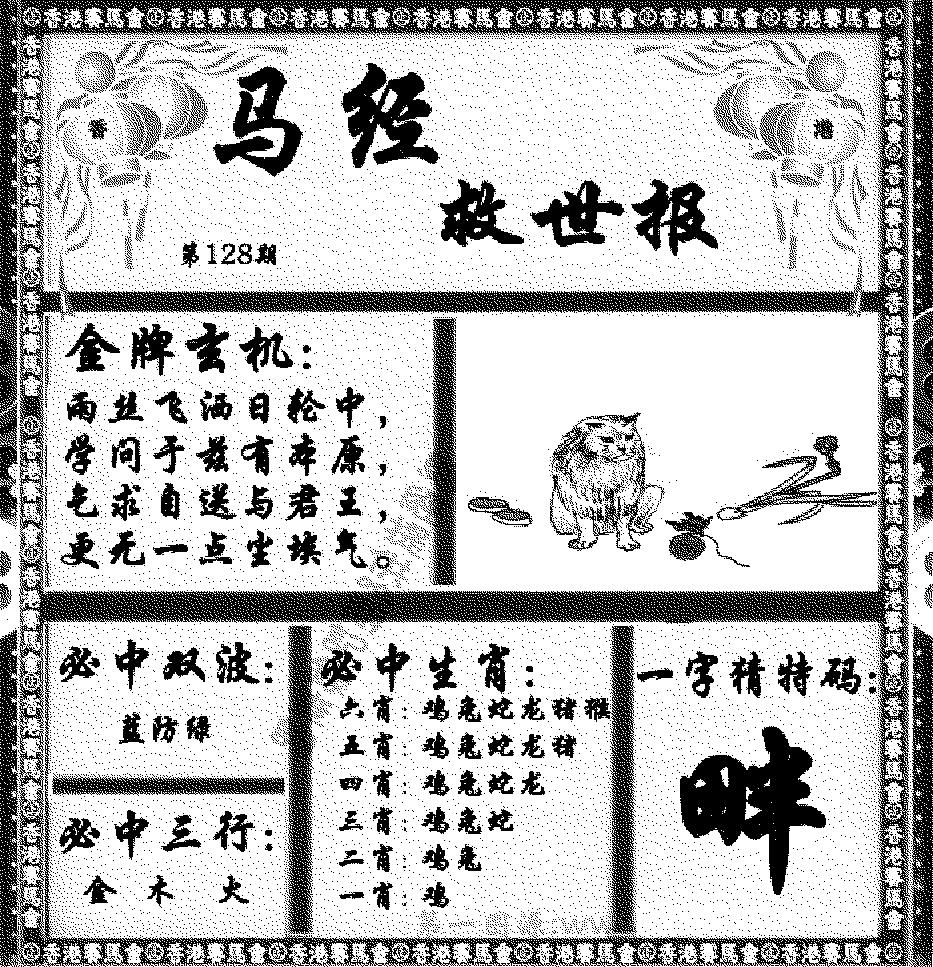 香港賽馬會 香港賽馬會 香港賽馬會 香港賽馬會 香港賽馬會 香港賽馬會 香港賽馬會
香
港
马经
救世报
第128期
金牌玄机:
雨丝飞洒日轮中,
学问于兹有本原,
乞求自送与君王,
更无一点尘埃气。
必中双波:
蓝防绿
必中三行:
金 木 火
必中生肖:
六肖: 鸡兔蛇龙猪猴
五肖: 鸡兔蛇龙猪
四肖: 鸡兔蛇龙
三肖: 鸡兔蛇
二肖: 鸡兔
一肖: 鸡
一字猜特码:
畔
香港賽馬會 香港賽馬會 香港賽馬會 香港賽馬會 香港賽馬會 香港賽馬會 香港賽馬會